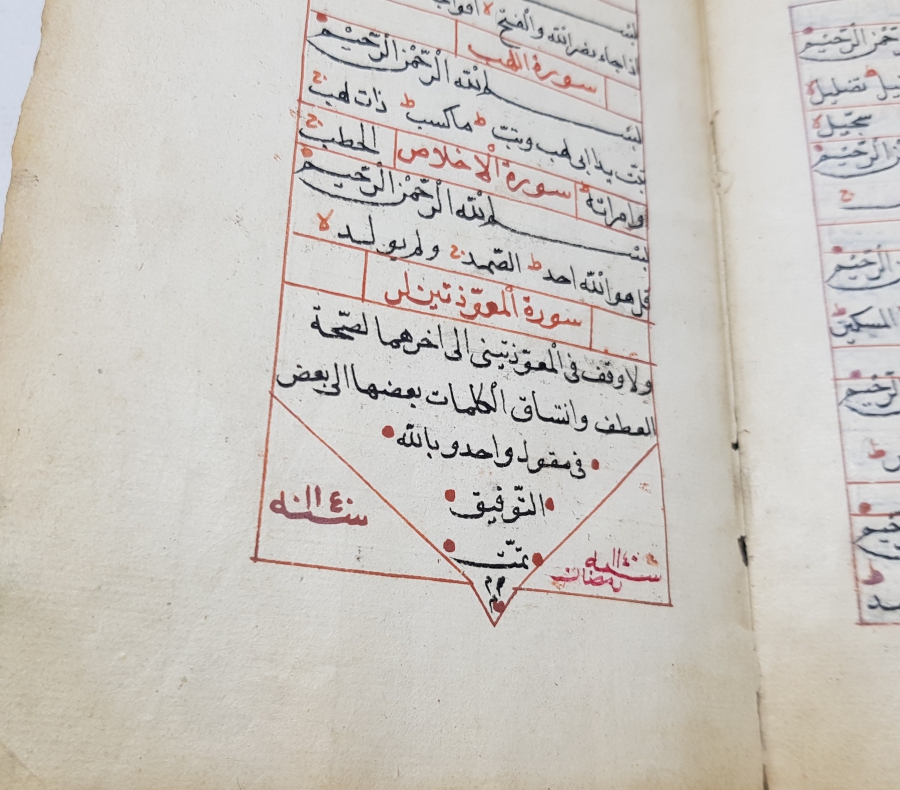 اذا جاء نصر الله والفتح لا افواجا
سورة اللهب
بسم الله الرحمن الرحيم
تبت يدا ابى لهب وتبّ ط ما كسب ط ذات لهب ج
وامراته ط الحطب ج
سورة الْاخلاص
بسم الله الرحمن الرحيم
قل هو الله احد ط الصّمد ج ولم يولد لا
سورة المعوّذتين
ولا وقف فى المعوّذتينى الى اخرهما لصّحة
العطف وانتساق الكلمات بعضها الى بعض
فى مقول واحد وبالله
التّوفيق
تمّت
م م
م
سنه ١١٤٠
سنه ١١٤٠
رمضان
حمن الرّحيم
تضليل لا
سجّيل لا
الرّحيم
ج
الرّحيم
المسكين ط
الرّحيم
ط
الرّحيم
ط